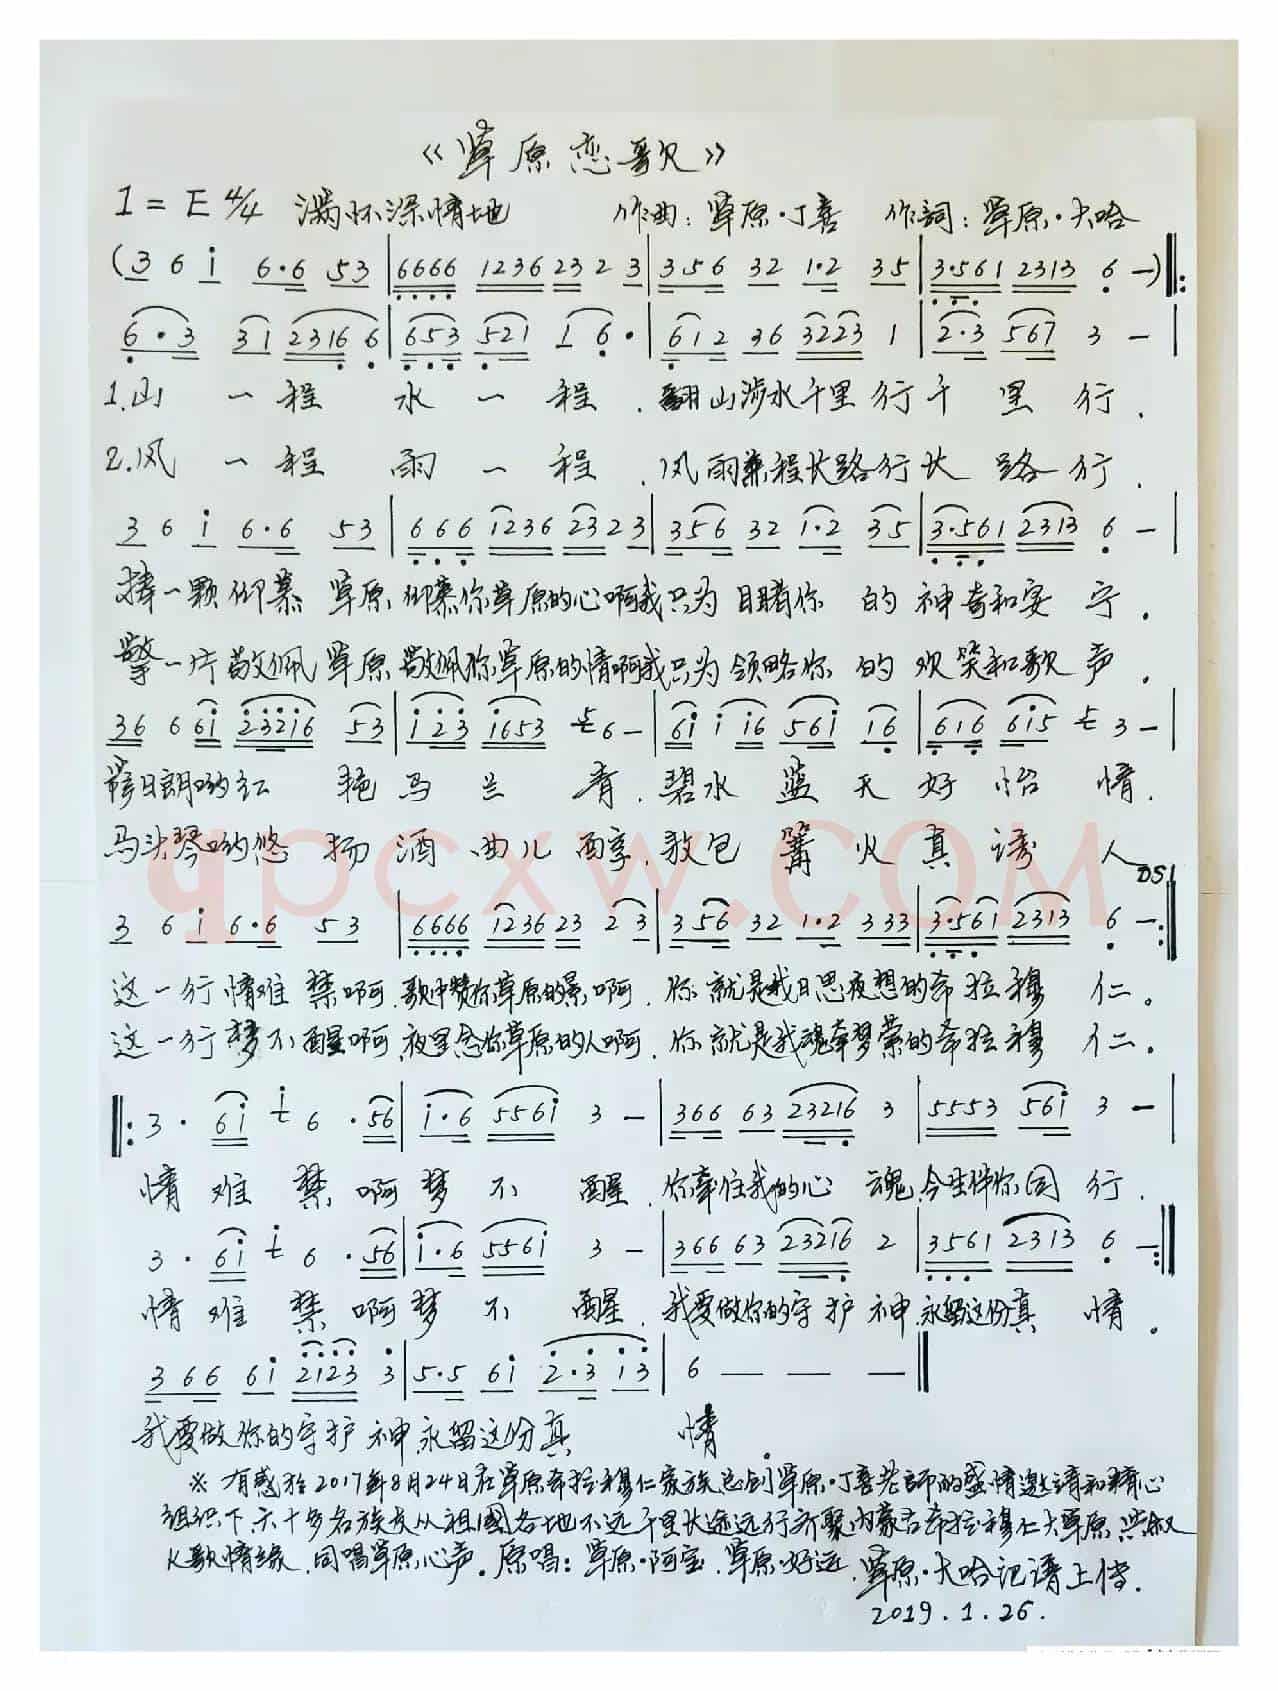 《草原恋歌》
1=E 4/4 满怀深情地 作曲：草原·丁喜 作詞：草原·大哈
(3 6 i 6·6 53 | 6666 1236 23 2 3 | 356 32 1·2 35 | 3·561 2313 6 —) ‖:
6·3 31 2316 6 | 653 521 1 6· | 612 36 3223 1 | 2·3 567 3 — |
1.山 一 程 水 一 程 . 翻山涉水千里行千 里 行 .
2.风 一 程 雨 一 程 . 风雨兼程长路行长 路 行 .
3 6 i 6·6 53 | 6 6 6 1236 23 23 | 356 32 1·2 35 | 3·561 2313 6 — |
捧一颗仰慕 草原 仰慕你草原的心啊我只为 目睹你 的 神奇和安 宁 .
擎一片敬佩 草原 敬佩你草原的情啊我只为 领略你 的 欢笑和歌 声 .
36 6 6i 232i6 53 | i 23 i653 5 6 — | 6i i i6 56i 16 | 616 6i5 5 3 — |
日朗哟红 艳 马 兰 青 . 碧水 蓝 天 好 怡 情 .
马头琴哟悠 扬 酒 曲儿 醇 . 敖包 篝 火 真 诱 人
DS
3 6 i 6·6 53 | 6666 1236 23 2 3 | 356 32 1·2 3 33 | 3·561 2313 6 — :‖
这一行 情难 禁啊 . 歌中赞你草原的景啊 . 你 就是我日思夜想的希拉穆 仁 。
这一行 梦不醒啊 . 夜里念你草原的人啊 . 你 就是我魂牵梦萦的希拉穆 仁 。
‖: 3 · 6i i 6 · 56 | i·6 556i 3 — | 366 63 23216 3 | 5553 56i 3 — |
情 难 禁 啊 梦 不 醒 . 你牵住我的心 魂 . 今生伴你同 行 .
3 · 6i i 6 · 56 | i·6 556i 3 — | 366 63 23216 2 | 3561 2313 6 — :‖
情 难 禁 啊 梦 不 醒 . 我要做你的守 护 神 . 永留这份真 情 。
3 66 6i 2123 3 | 5·5 6i 2·3 13 | 6 — — — ‖
我要做你的守护 神 永留这份真 情 。
※ 有感于2017年8月24日在草原希拉穆仁家族总创草原·丁喜老師的盛情邀请和精心
组织下.六十多名族友从祖國各地不远千里长途远行齐聚内蒙古希拉穆仁大草原.共叙
K歌情缘.同唱草原心声。原唱：草原·阿宝.草原·好远.草原·大哈记谱上传.
2019.1.26.
qpcxw.COM